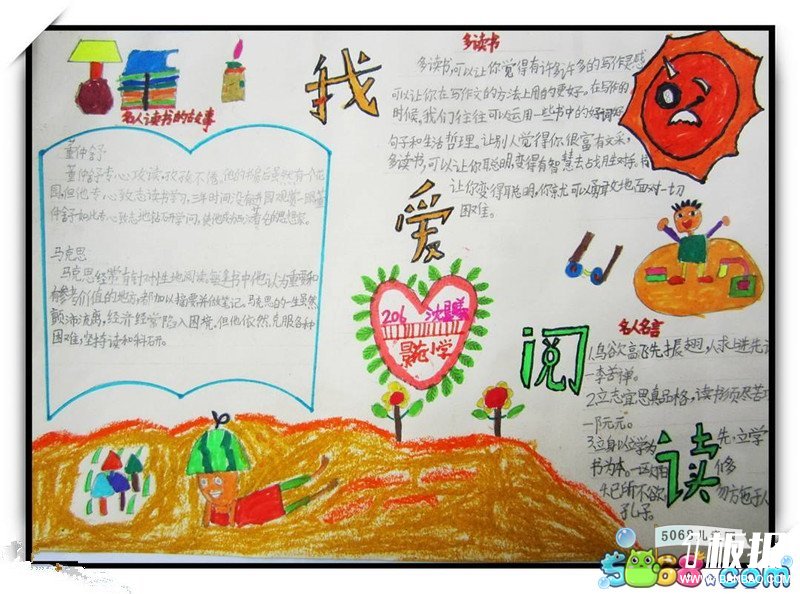 我
爱
阅
读
名人读书的故事
董仲舒
董仲舒专心攻读,孜孜不倦。他的书房后虽然有一个花
园,但他专心致志读书学习,三年时间没有进园观赏一眼,董
仲舒如此专心致志地钻研学问,使他成为西汉著名的思想家。
马克思
马克思经常有针对性地阅读,每逢书中他认为重要和
有参考价值的地方,都加以描票并做笔记。马克思的一生虽然
颠沛流离,经济经常陷入困境,但他依然克服各种
困难,坚持读和科研。
多读书
多读书可以让你觉得有许多许多的写作灵感
可以让你在写作文的方法上用的更好。在写作的
时候,我们往往可以运用一些书中的好词好
句子和生活哲理。让别人觉得你很富有文采,
多读书,可以让你聪明,变得有智慧去战胜对手,
让你变得聪明,你就可以勇敢地面对一切
困难。
206
小学
名人名言
1.鸟欲高飞先振翅,人求上进先读
—李苦禅。
2.立志宜思真品格,读书须尽苦功
—阮元。
3.立身以立学为先,立学
书为本。
4.己所不欲勿方包于人
孔子。
5068儿童
板报
WWW.BANBAO.COM
5068.com